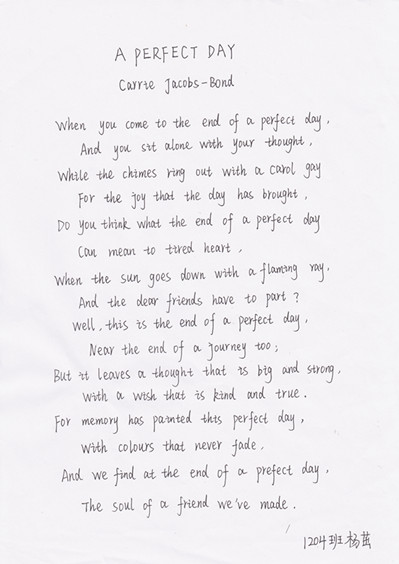 A PERFECT DAY
Carrie Jacobs-Bond
When you come to the end of a perfect day,
And you sit alone with your thought,
While the chimes ring out with a carol gay
For the joy that the day has brought,
Do you think what the end of a perfect day
Can mean to tired heart,
When the sun goes down with a flaming ray,
And the dear friends have to part?
Well, this is the end of a perfect day,
Near the end of a journey too;
But it leaves a thought that is big and strong,
With a wish that is kind and true.
For memory has painted this perfect day,
With colours that never fade,
And we find at the end of a prefect day,
The soul of a friend we've made.
1204班 杨茁